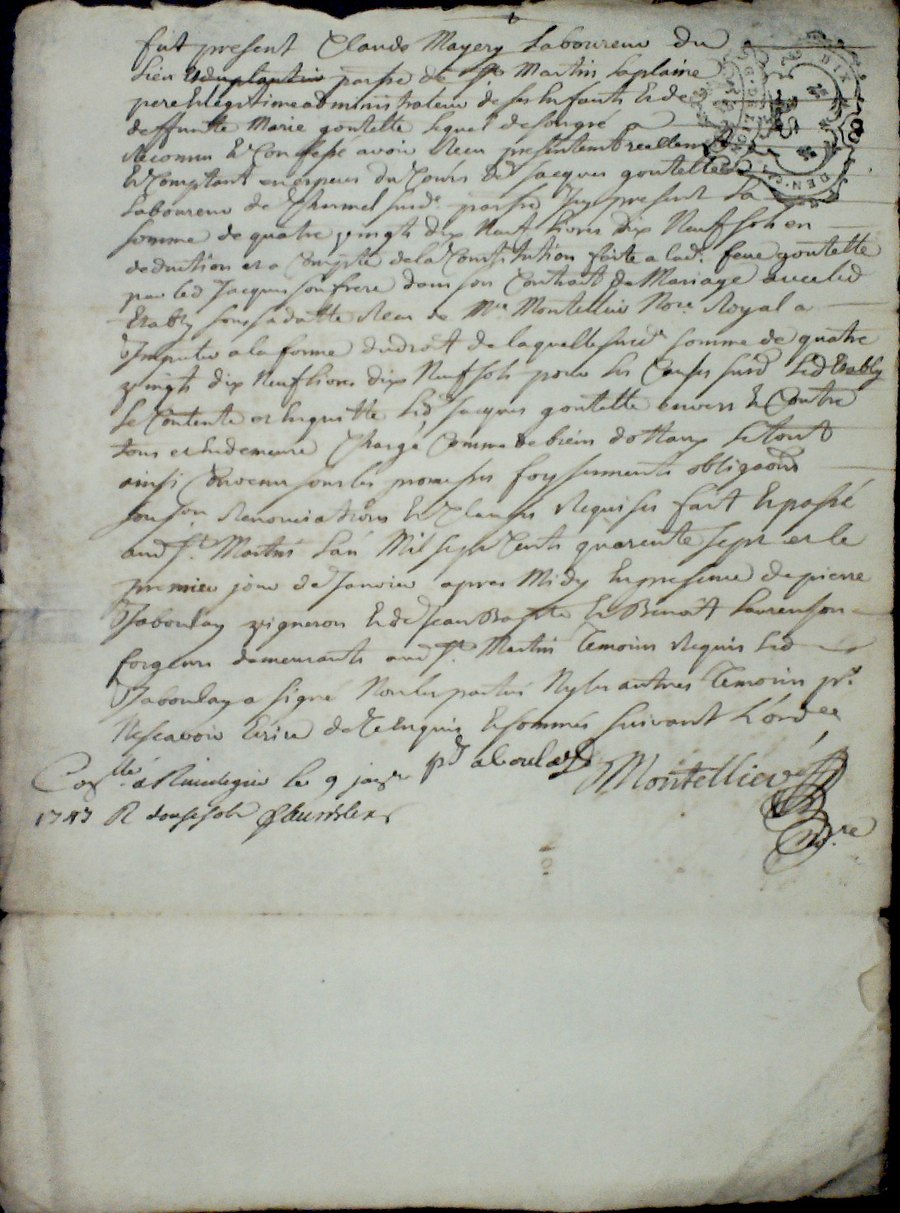 fut present Claude Mayery Laboureur du
Lieu parsse de St Martin Laplaine
pere Et legitime administrateur de ses Enfants Et de
deffuntte Marie goutelle Lequel de son gré a
Reconnu Et Confessé avoir Reçu presentement reellemt
Et Comptant en especes du Cours dud Jacques goutelle
Laboureur de Chermel susd. parsse Icy present La
somme de quatre vingts dix Neuf livres dix Neuf sols en
deduction et a Compte de la Constitution faite a lad. feue goutelle
par led Jacques son frere dans son Contrat de Mariage avec led
sous sa datte Recu de Mre Montellier Nore. Royal a
Imputer a la forme du droit de laquelle susd. somme de quatre
vingts dix Neuf livres dix Neuf sols pour les Causes susd Led
se Contente et En quitte Led. Jacques goutelle envers Et Contre
tous et En demeure Chargé Comme de biens dottaux Le tout
ainsi Convenu sous les promesses foy serments obligaons
Renonciations Et Clauses Requises fait Et passé
aud St. Martin L'an Mil sept Cents quarente sept et le
premier jour de Janvier apres Midy En presence de pierre
Jaboulay vigneron Et de Jean Baptte Et Benoît Laurenson
forgeurs demeurants aud St. Martin Temoins Requis Led
Jaboulay a signé Non les parties Ny les autres Temoins pr.
Ne scavoir Ecrire de Ce Enquis Et sommés suivant L'ordce
pr Jaboulay Montellier
Conllé a Rivedegier le 9 janer Nore
1747 R douze sols